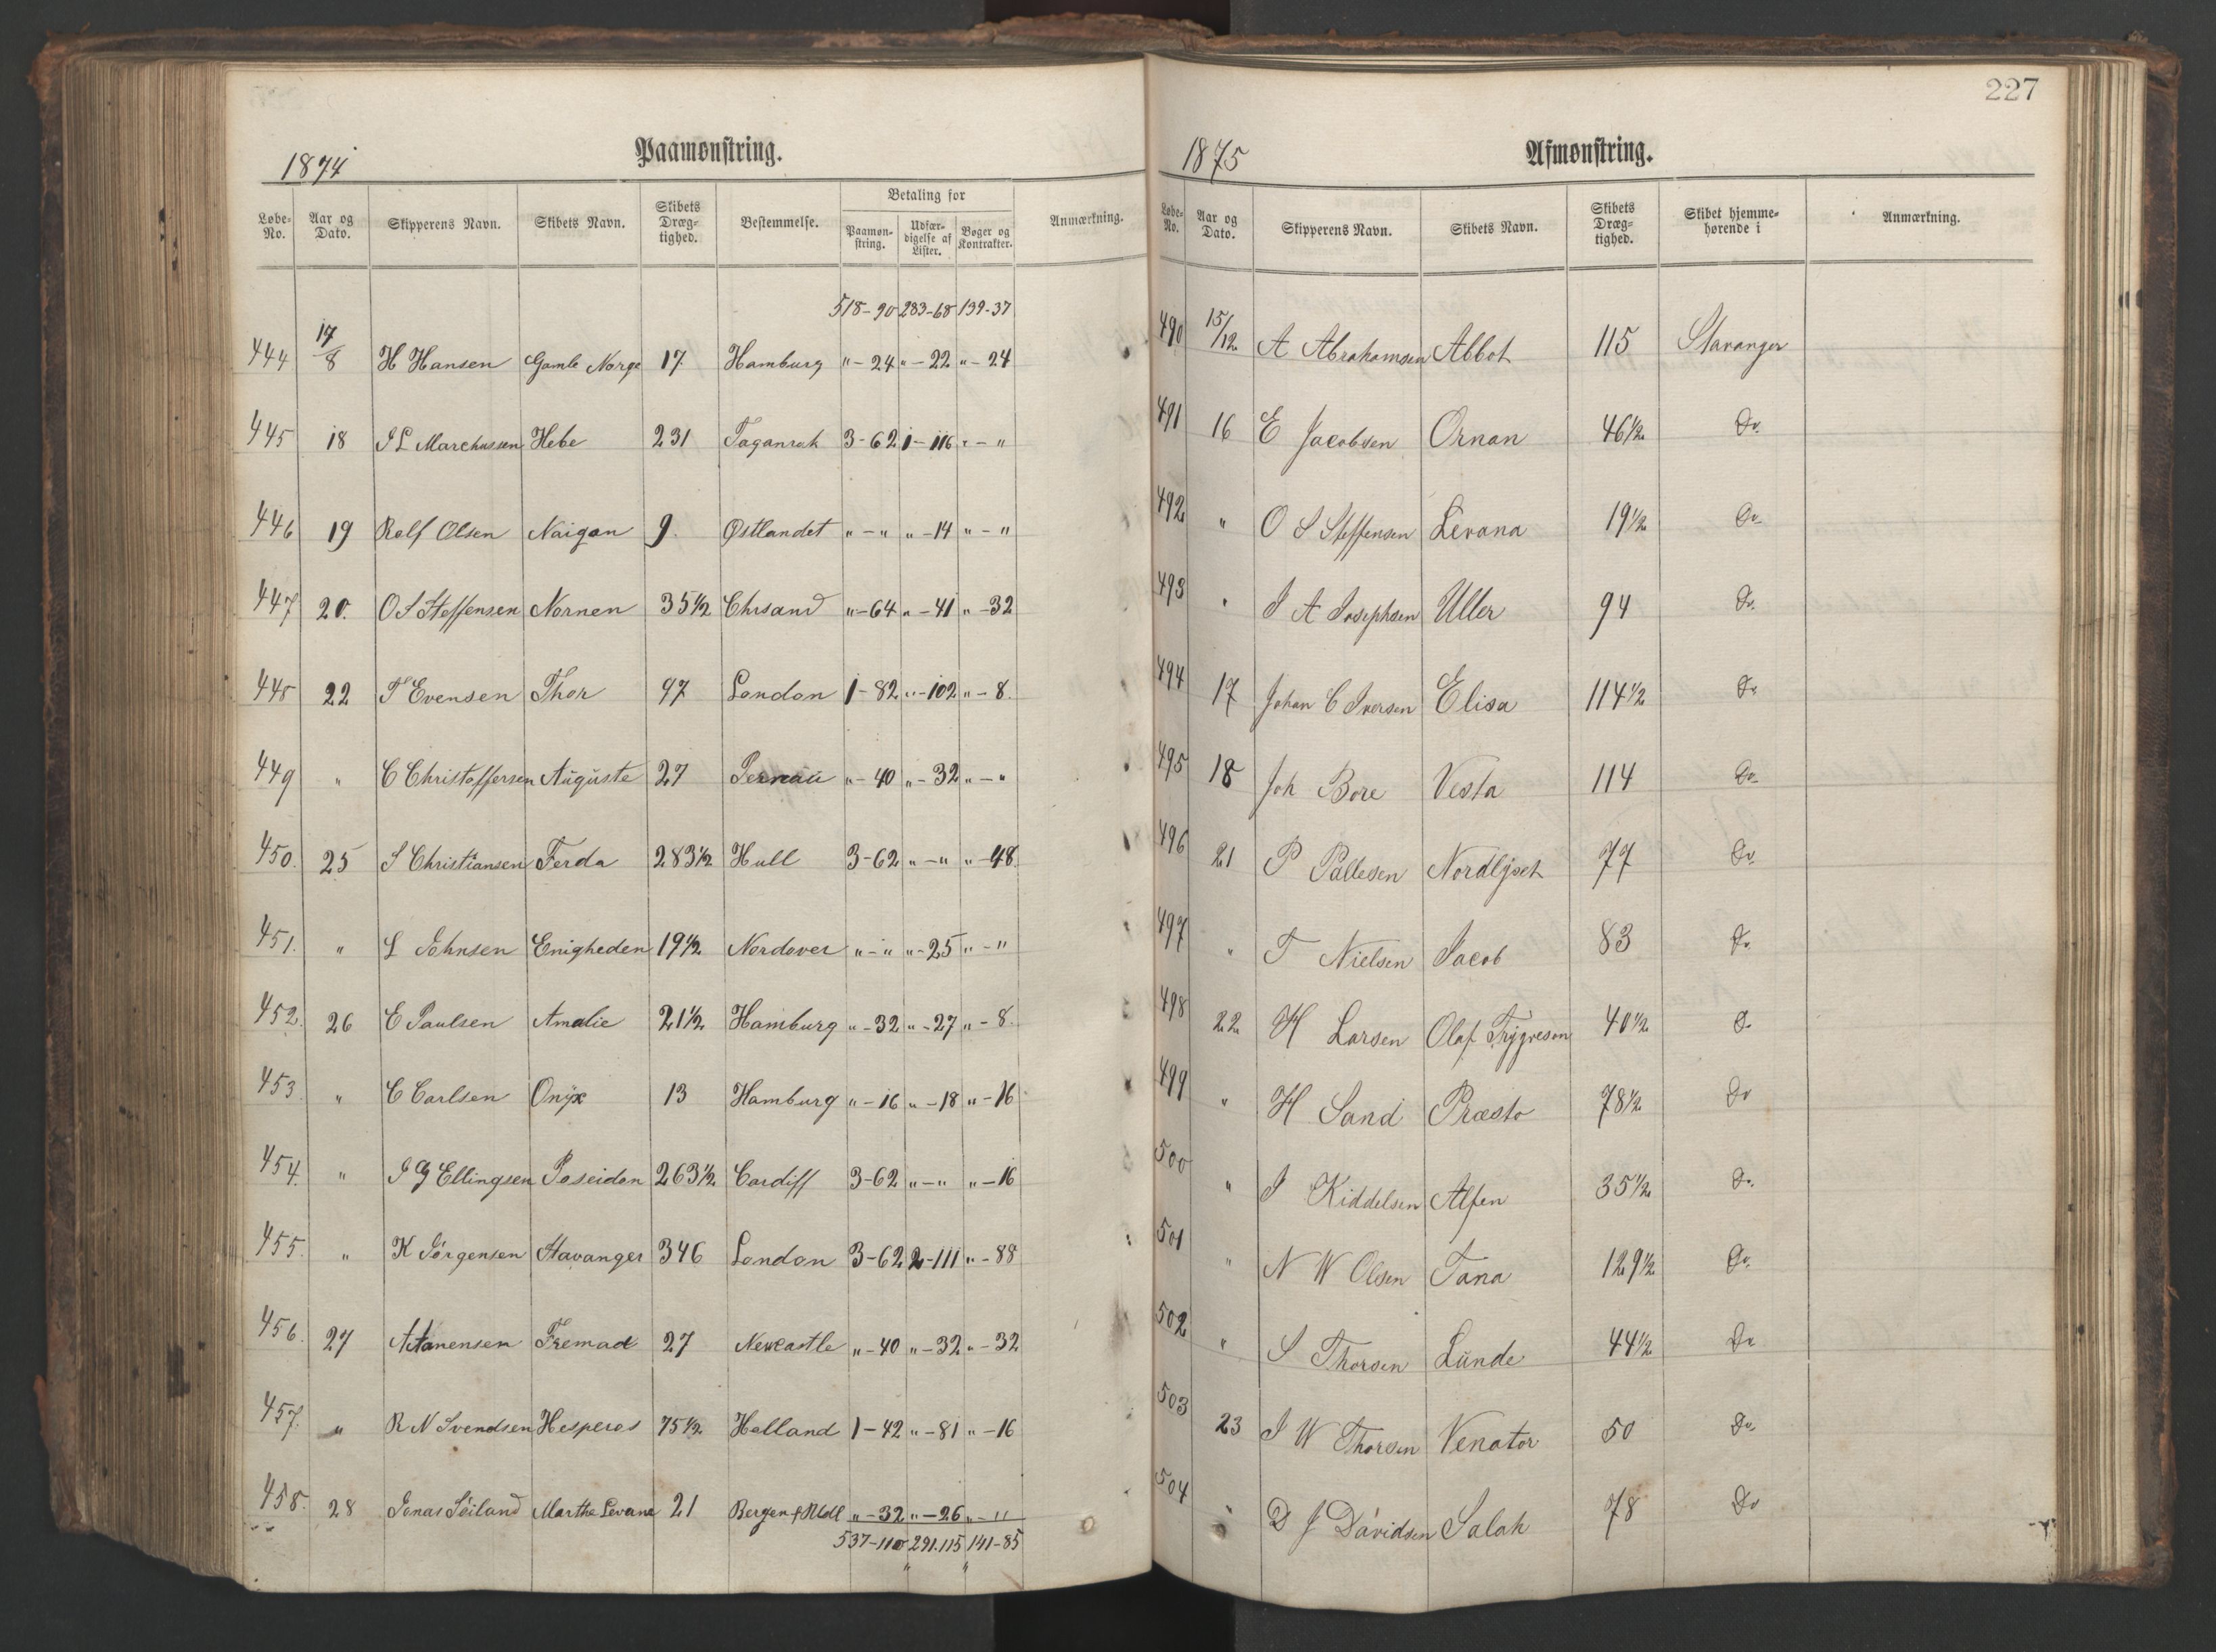 1874 Paamønstring.
Løbe-No. Aar og Dato. Skipperens Navn. Skibets Navn. Skibets Dræg-tighed. Bestemmelse. Betaling for Anmærkning.
Paamøn-string. Udfær-digelse af Lister. Bøger og Kontrakter.
518-90 283-68 139-37
444 17/8 H Hansen Gamle Norge 17. Hamburg "-24 "-22 "-24
445 18 I L Marchussen Hebe 231 Taganrok 3-62 1-116 "-"
446 19 Rolf Olsen Naigon 9. Østlandet "-" "-14 "-"
447 20. O S Steffensen Nornen 35½ Chrsand "-64 "-41 "-32
448 22 T Evensen Thor 97 London 1-82 "-102 "-8.
449 " C Christoffersen Auguste 27 Pernau "-40 "-32 "-"
450. 25 S Christiansen Ferda 283½ Hull 3-62 "-" "-48
451. " L Johnsen Enigheden 19½ Nordover "-" "-25 "-"
452. 26 E Paulsen Amalie 21½ Hamburg "-32 "-27 "-8.
453. " C Carlsen Onyx 13 Hamburg "-16 "-18 "-16
454. " I G Ellingsen Poseidon 263½ Cardiff 3-62 "-" "-16
455. " K Jørgensen Stavanger 346 London 3-62 2-111 "-88
456. 27 A Tanensen Fremad 27 Newcastle "-40 "-32 "-32
457. " R N Svendsen Hesperos 75½ Holland 1-42 "-81 "-16
458. 28 Jonas Söiland Marthe Levane 21 Bergen "-32 "-26 "-"
537-110 291.115 141-85
227
1875 Afmønstring.
Løbe-No. Aar og Dato. Skipperens Navn. Skibets Navn. Skibets Dræg-tighed. Skibet hjemme-hørende i Anmærkning.
490 15/12 A Abrahamsen Abbot 115 Stavanger
491 16 E Jacobsen Ornan 46½ Do.
492 " O S Steffensen Levana 19½ Do.
493 " I A Josephsen Uller 94 Do.
494 17 Johan C Iversen Elisa 114½ Do.
495 18 Joh Bore Vesta 114 Do.
496 21 P Pallesen Nordlyset 77 Do.
497 " T Nielsen Jacob 83 Do.
498 22 H Larsen Olaf Trygveson 40½ Do
499 " H Sand Præsto 78½ Do
500 " I Kiddelsen Alfen 35½ Do.
501 " N W Olsen Tana 129½ Do.
502 " S Thorsen Lunde 44½ Do
503 23 I W Thorsen Venator 50 Do.
504 " D J Davidsen Salak 78 Do